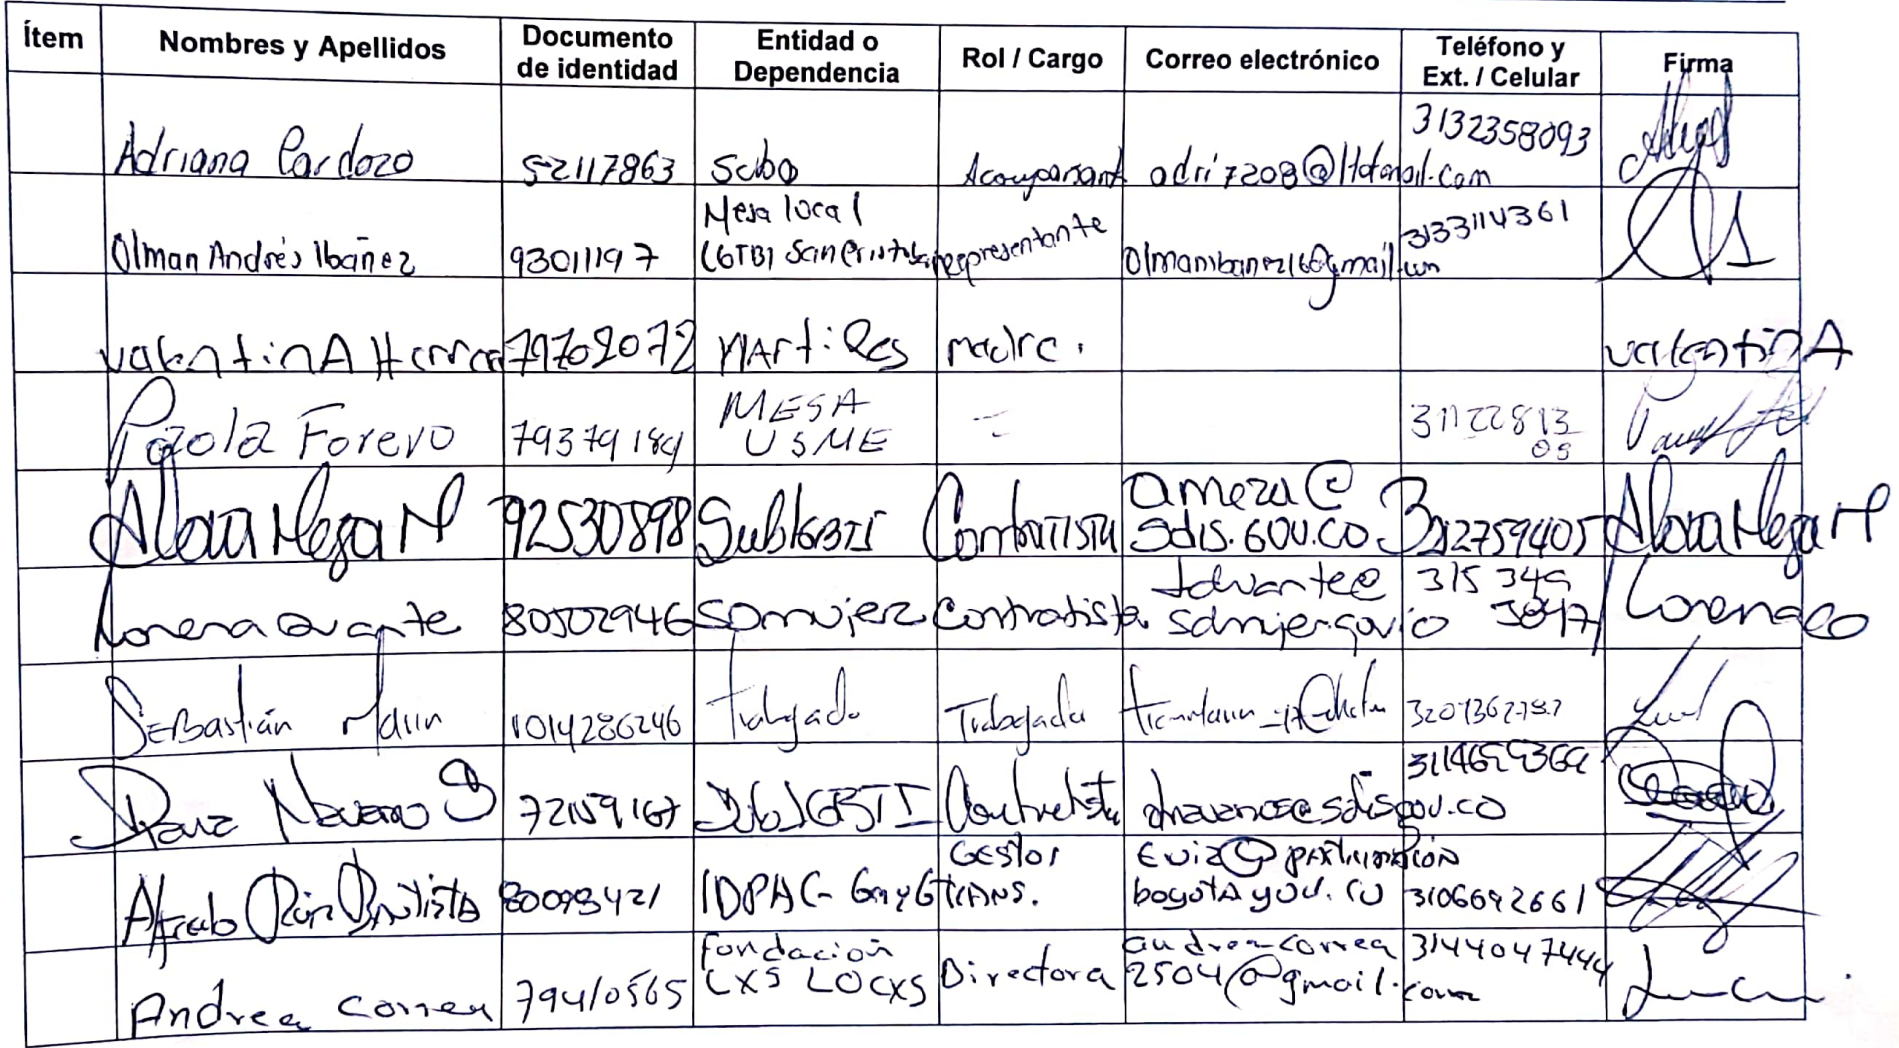 Ítem Nombres y Apellidos Documento de identidad Entidad o Dependencia Rol / Cargo Correo electrónico Teléfono y Ext. / Celular Firma
Adriana Cardozo 52117863 Suba adri7208@Hotmail.com 3132358093
Olman Andrés Ibañez 93011197 Mesa local LGTBI San Cristobal representante Olmanibanez16@gmail.com 3133114361
valentinA Herrera 79702072 MArtiRes madre. valentinA
Paola Forero 79379184 MESA USME 31122813 05
Alexa Meza M 92530898 SubLGBTI Contratista ameza@sdis.gov.co 3212759405 Alexa Meza M
Lorena Duarte 80502946 SDmujer Contratista lduarte@sdmujer.gov.co 315 349 3847
Sebastián Marin 1014286246
Navarro 72159167 SubLGBTI Contratista dnavarro@sdis.gov.co 3114699369
Alfredo Bautista 80093421 IDPAC- GmyG Gestor TRANS. participación bogota.gov.co 3106692661
Andrea Correa 79410565 Fundación LXS LOCXS Directora andrea-correa2504@gmail.com 3144047444